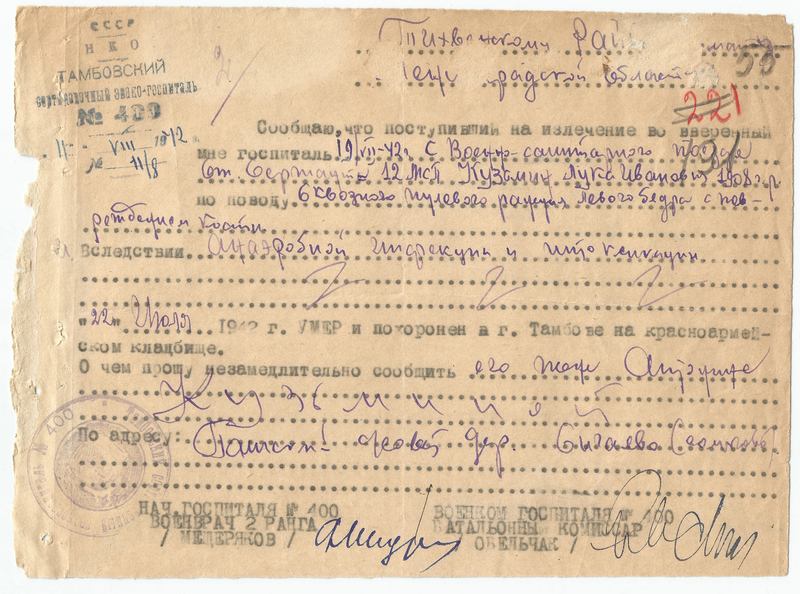 СССР
НКО
ТАМБОВСКИЙ
СОРТИРОВОЧНЫЙ ЭВАКО-ГОСПИТАЛЬ
№ 400
11 VIII 1942 г.
№ 11/8
Тихвинскому Рай
области
53
221
Сообщаю, что поступивший на излечение во вверенный
мне госпиталь 19/VII-42г с Военно-санитарного поезда
ст. Сержант 12 МСП Кузьмин Лука Иванович 1908 г.р
по поводу сквозного пулевого ранения левого бедра с пов-
реждением кости
Вследствии Анаэробной инфекции и интоксикации
"22" Июля 1942 г. УМЕР и похоронен в г. Тамбове на красноармей-
ском кладбище.
О чем прошу незамедлительно сообщить его жене
Кузьминой
По адресу: дер.
НАЧ.ГОСПИТАЛЯ № 400
ВОЕНВРАЧ 2 РАНГА
/ МЕЩЕРЯКОВ /
ВОЕНКОМ ГОСПИТАЛЯ № 400
БАТАЛЬОННЫЙ КОМИССАР
ОБЕЛЬЧАК /